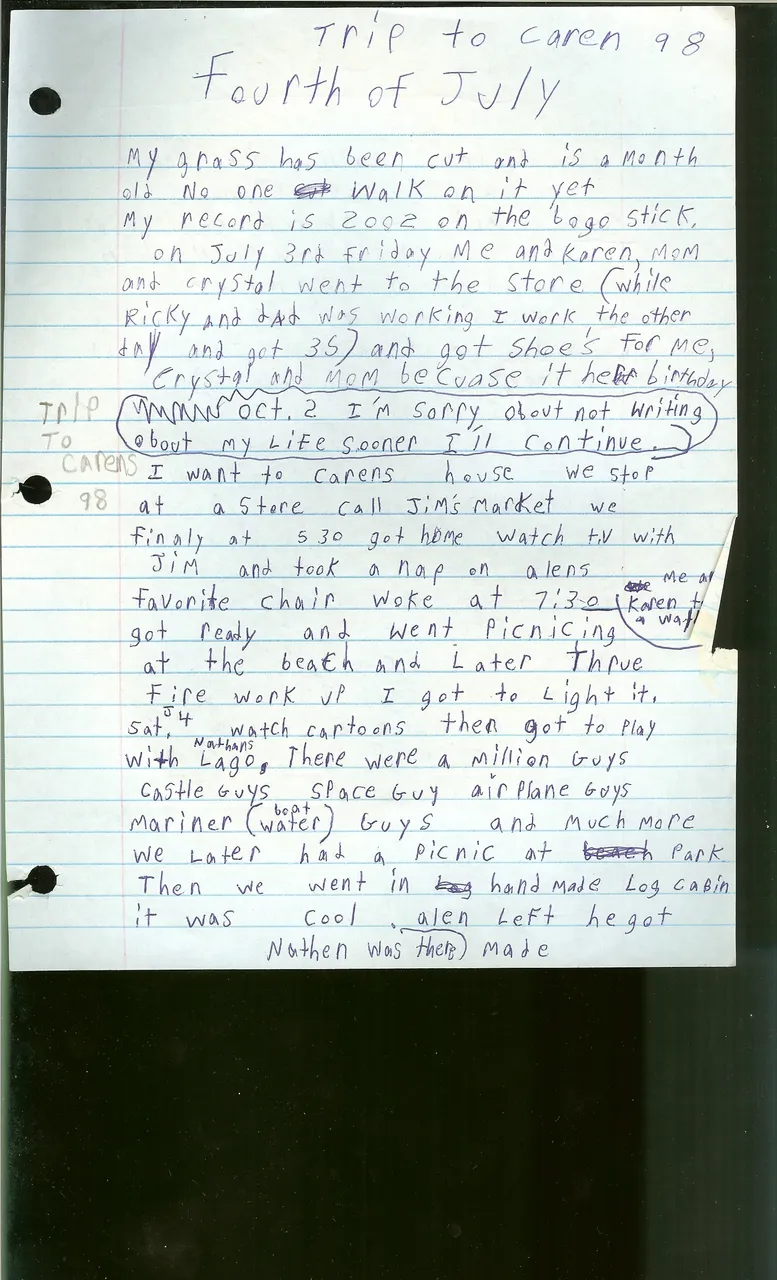 Trip to Caren 98
Fourth of July
My grass has been cut and is a month
old No one walk on it yet
My record is 2002 on the bogo stick.
on July 3rd friday Me and Karen, Mom
and crystal went to the store (while
Ricky and dad was working I work the other
day and got 35) and got shoe's for me,
Crystal and Mom becuase it her birthday
Oct. 2 I'm sorry about not writing
about my Life sooner I'll continue.
Trip
To
Carens
98
I want to carens house we stop
at a store call Jim's Market we
finaly at 5 30 got home watch tv with
Jim and took a nap on alens
favorite chair woke at 7:30
Me a
Karen t
a wat
got ready and went picnicing
at the beach and Later Thrue
Fire work up I got to Light it.
Sat. J4 watch cartoons then got to play
with Nathans Lago. There were a million Guys
castle Guys space Guy airplane Guys
mariner (boat water) Guys and much more
we Later had a picnic at Park
Then we went in hand made Log cabin
it was cool. alen Left he got
Nathen was there) made